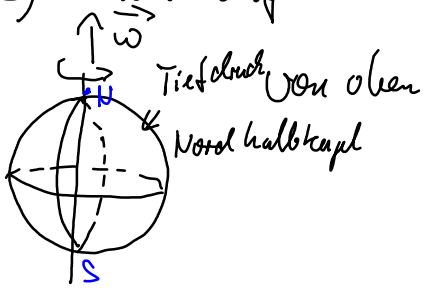 ω
N
Tiefdruck von oben
Nordhalbkugel
S